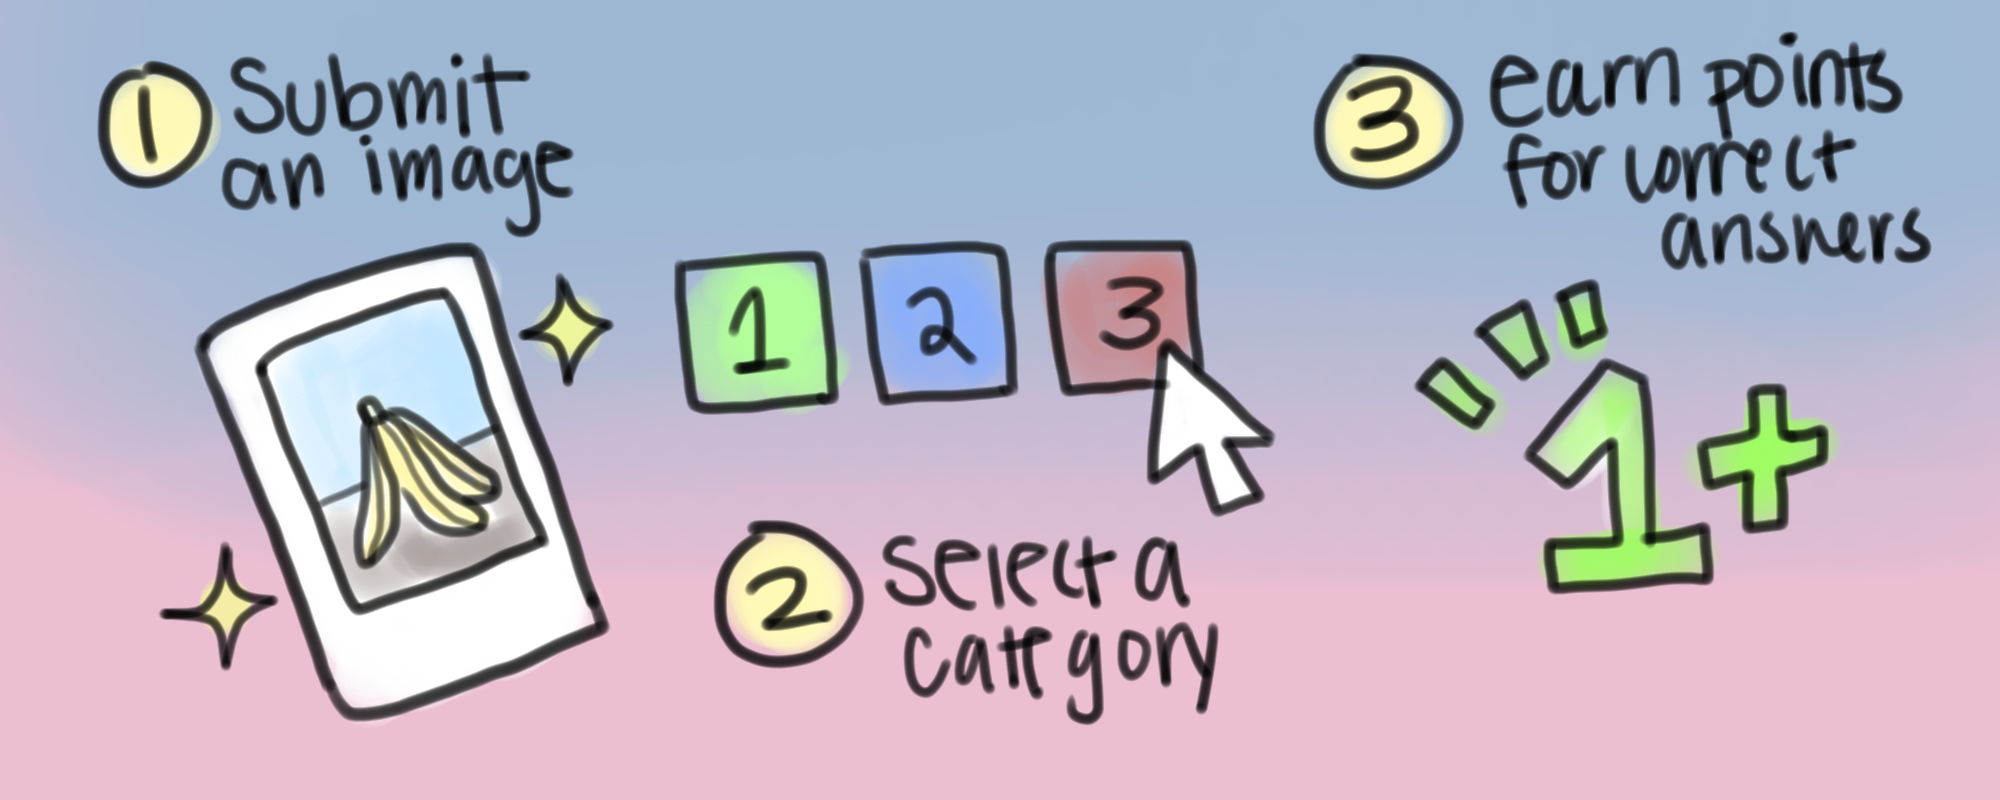 1 Submit
an image
1 2 3
2 select a
category
3 earn points
for correct
answers
1+